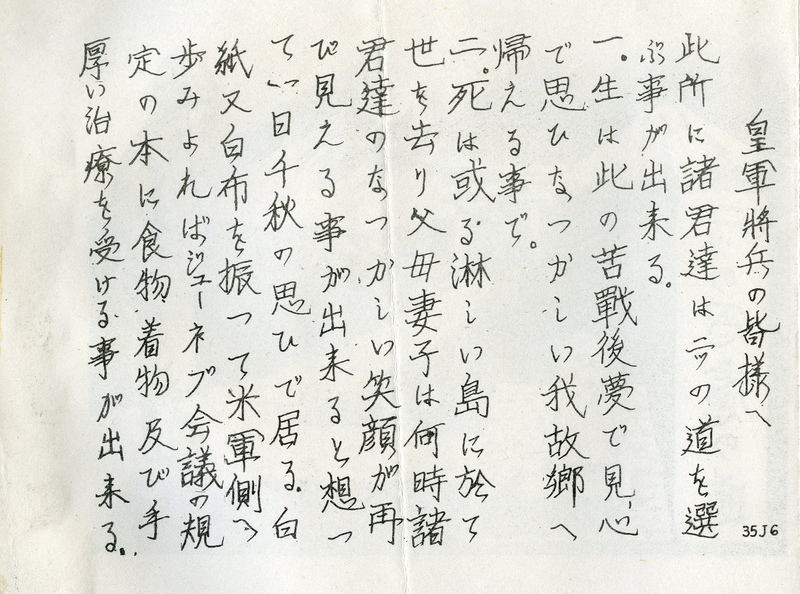 皇軍將兵の皆様へ
此所に諸君達は二ツの道を選
ぶ事が出来る。
一。生は此の苦戰後夢で見、心
で思ひなつかしい我故郷へ
帰える事で。
二。死は或る淋しい島に於て
世を去り父母妻子は何時諸
君達のなつかしい笑顔が再
び見える事が出来ると想つ
て一日千秋の思ひで居る。白
紙又白布を振つて米軍側へ
歩みよればジューネブ会議の規
定の本に食物着物及び手
厚い治療を受ける事が出来る。
35J6